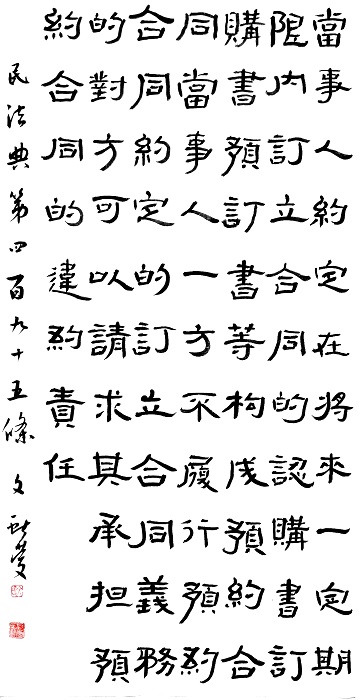 當事人約定在将來一定期
限内訂立合同的認購書訂
購書預訂書等构成預約合
同當事人一方不履行預約
合同約定的訂立合同義務
的對方可以請求其承担預
約合同的違約責任
民法典第四百九十五條 文